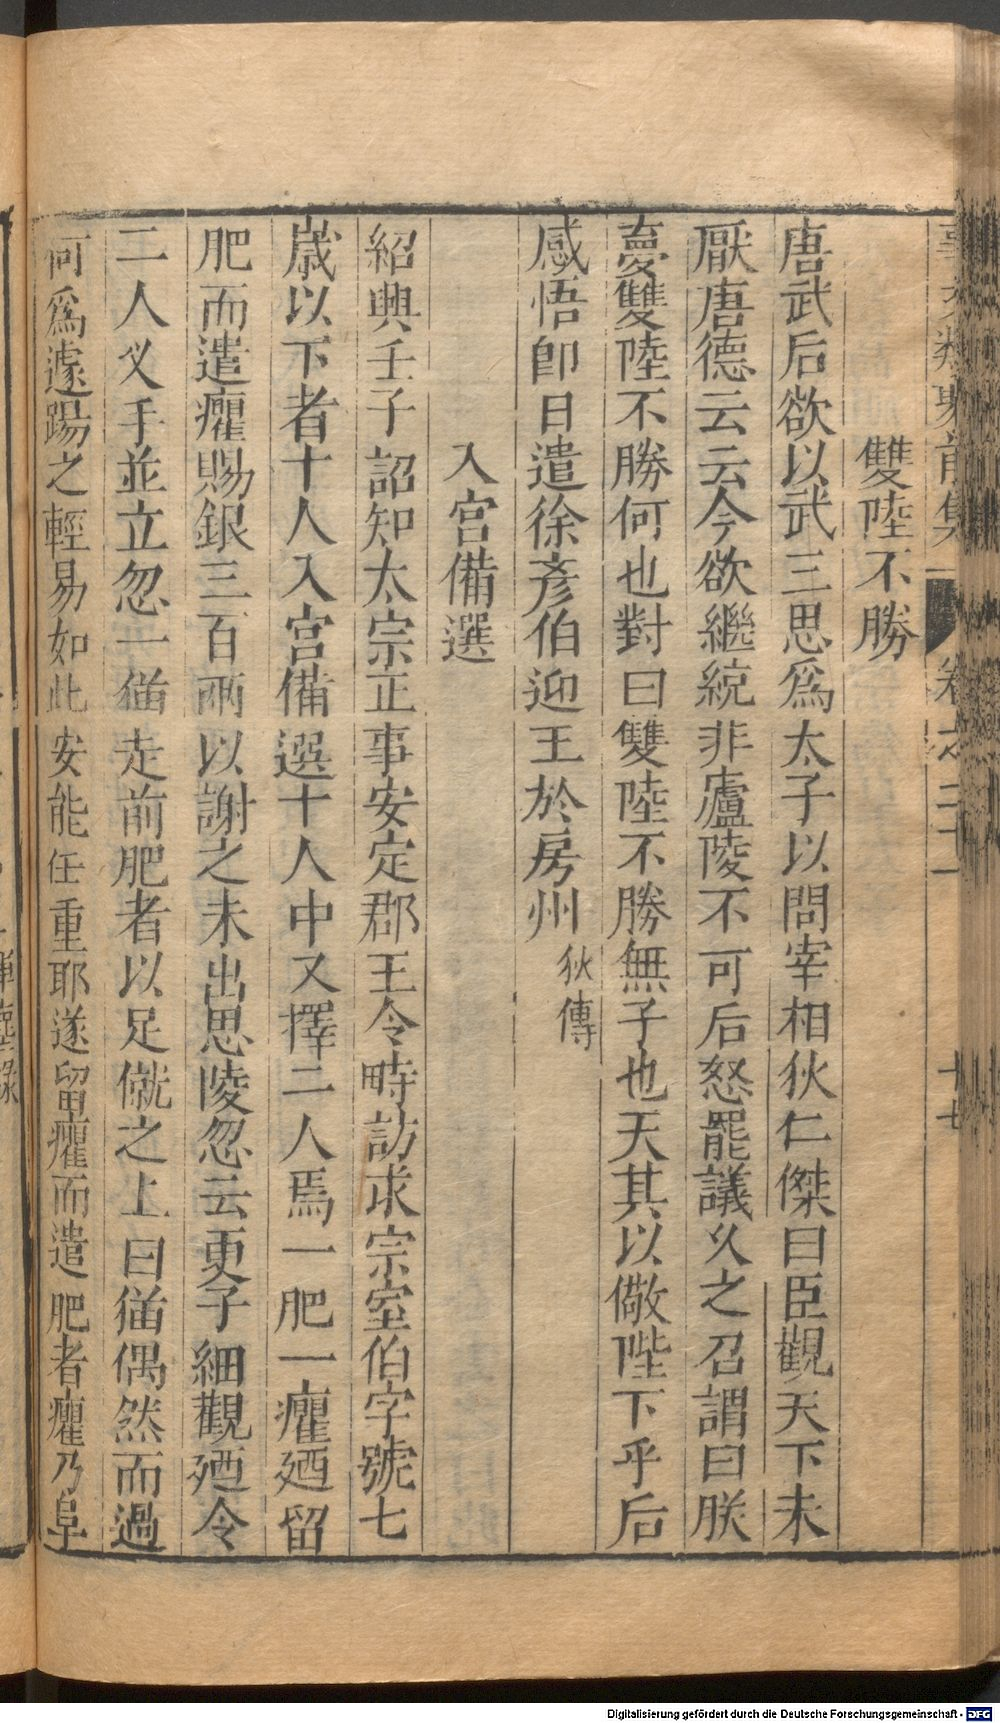 事文類聚前集 卷之二十一 十七
雙陸不勝
唐武后欲以武三思爲太子以問宰相狄仁傑曰臣觀天下未
厭唐德云云今欲繼統非廬陵不可后怒罷議久之召謂曰朕
㝱雙陸不勝何也對曰雙陸不勝無子也天其以儆陛下乎后
感悟卽日遣徐彥伯迎王於房州狄傳
入宮備選
紹興壬子詔知太宗正事安定郡王令畤訪求宗室伯字號七
歲以下者十人入宮備選十人中又擇二人焉一肥一癯廼留
肥而遣癯賜銀三百兩以謝之未出思陵忽云更子細觀廼令
二人乂手並立忽一猫走前肥者以足僦之上曰猫偶然而過
何爲遽踢之輕易如此安能任重耶遂留癯而遣肥者癯乃阜
Digitalisierung gefördert durch die Deutsche Forschungsgemeinschaft - DFG